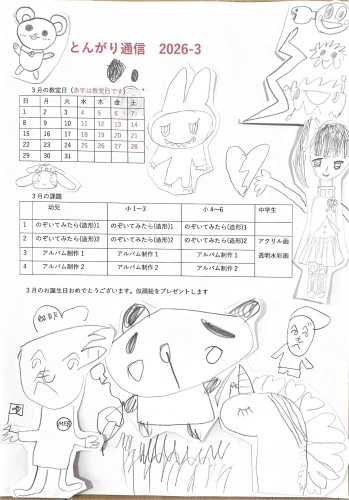 とんがり通信　2026-3
3月の教室日（赤字は教室日です）
日 月 火 水 木 金 土
1 2 3 4 5 6 7
8 9 10 11 12 13 14
15 16 17 18 19 20 21
22 23 24 25 26 27 28
29 30 31
3月の課題
幼児 小1～3 小4～6 中学生
1 のぞいてみたら(造形)1 のぞいてみたら(造形)1 のぞいてみたら(造形)1
2 のぞいてみたら(造形)2 のぞいてみたら(造形)2 のぞいてみたら(造形)2 アクリル画
3 アルバム制作1 アルバム制作1 アルバム制作1 透明水彩画
4 アルバム制作2 アルバム制作2 アルバム制作2
3月のお誕生日おめでとうございます。似顔絵をプレゼントします